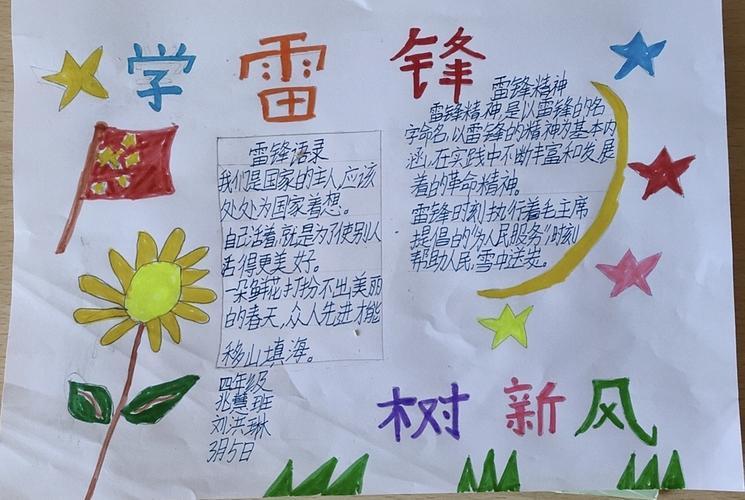 学雷锋
雷锋语录
我们是国家的主人,应该
处处为国家着想。
自己活着,就是为了使别人
活得更美好。
一朵鲜花打扮不出美丽
的春天,众人先进才能
移山填海。
四年级
兆慧班
刘洪琳
3月5日
雷锋精神
雷锋精神,是以雷锋的名
字命名,以雷锋的精神为基本内
涵,在实践中不断丰富和发展
着的革命精神。
雷锋时刻执行着毛主席
提倡的“为人民服务”时刻
帮助人民,雪中送炭。
树新风